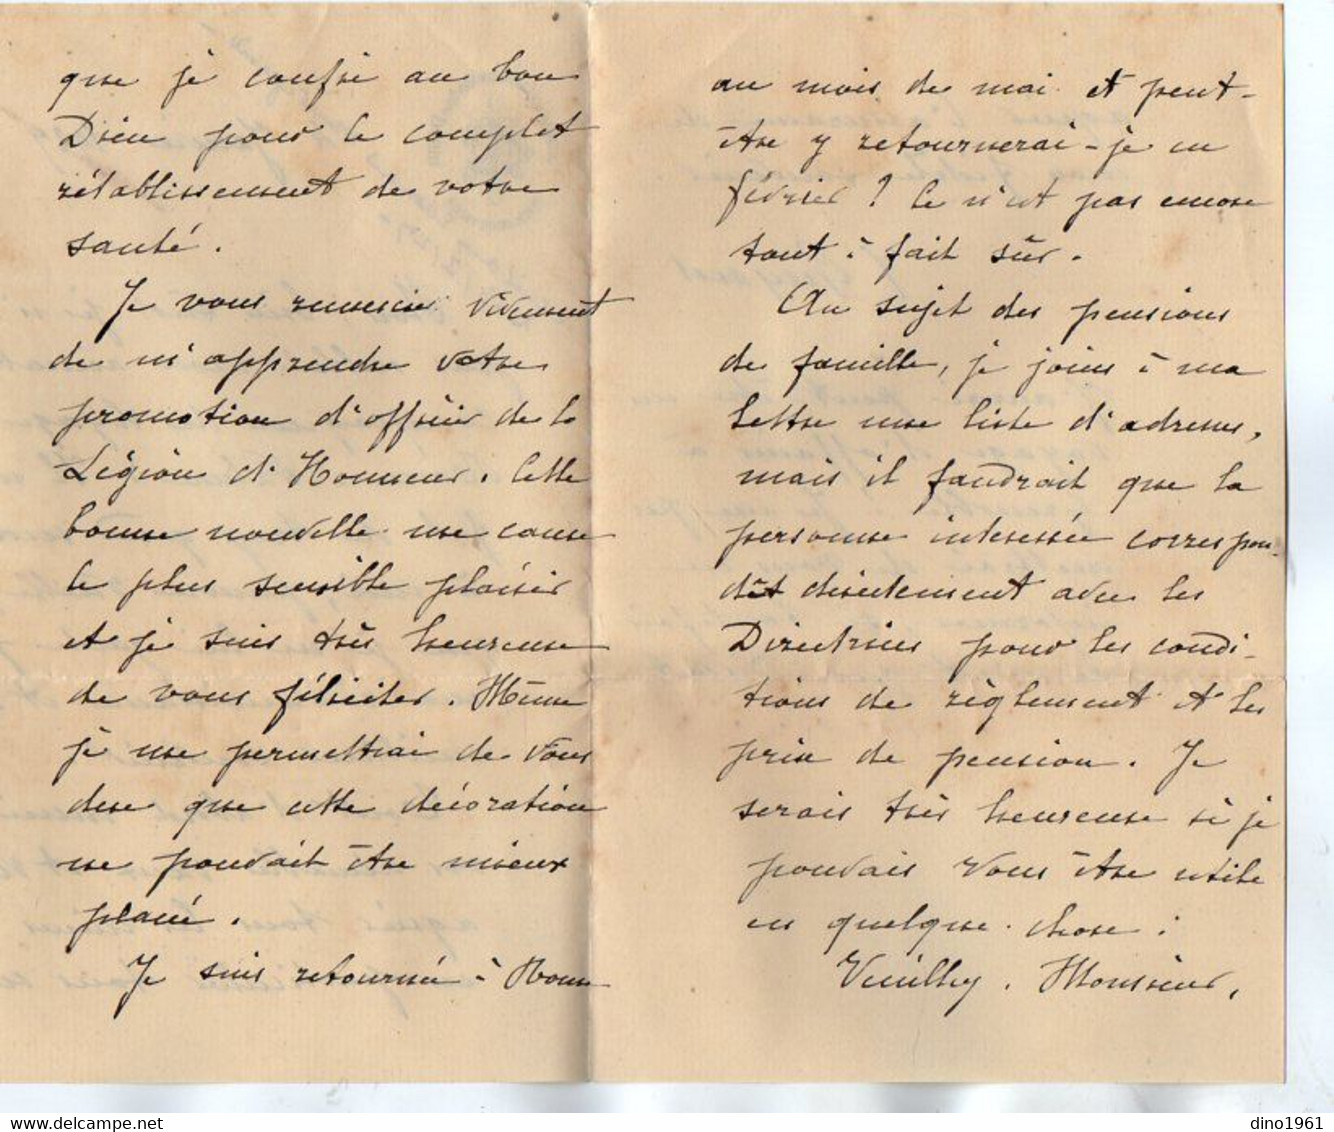 que je confie au bon
Dieu pour le complet
rétablissement de votre
santé.
Je vous remercie vivement
de m'apprendre votre
promotion d'officier de la
Légion d'Honneur. Cette
bonne nouvelle me cause
le plus sensible plaisir
et je suis très heureuse
de vous féliciter. Même
je me permettrai de vous
dire que cette décoration
ne pouvait être mieux
placée.
Je suis retournée à Rome
au mois de mai et peut-
être y retournerai-je en
février ? Ce n'est pas encore
tout à fait sûr.
Au sujet des pensions
de famille, je joins à ma
lettre une liste d'adresses,
mais il faudrait que la
personne intéressée correspon-
dît directement avec les
Directrices pour les condi-
tions de règlement et les
prix de pension. Je
serais très heureuse si je
pouvais vous être utile
en quelque chose.
Veuillez, Monsieur,
dino1961